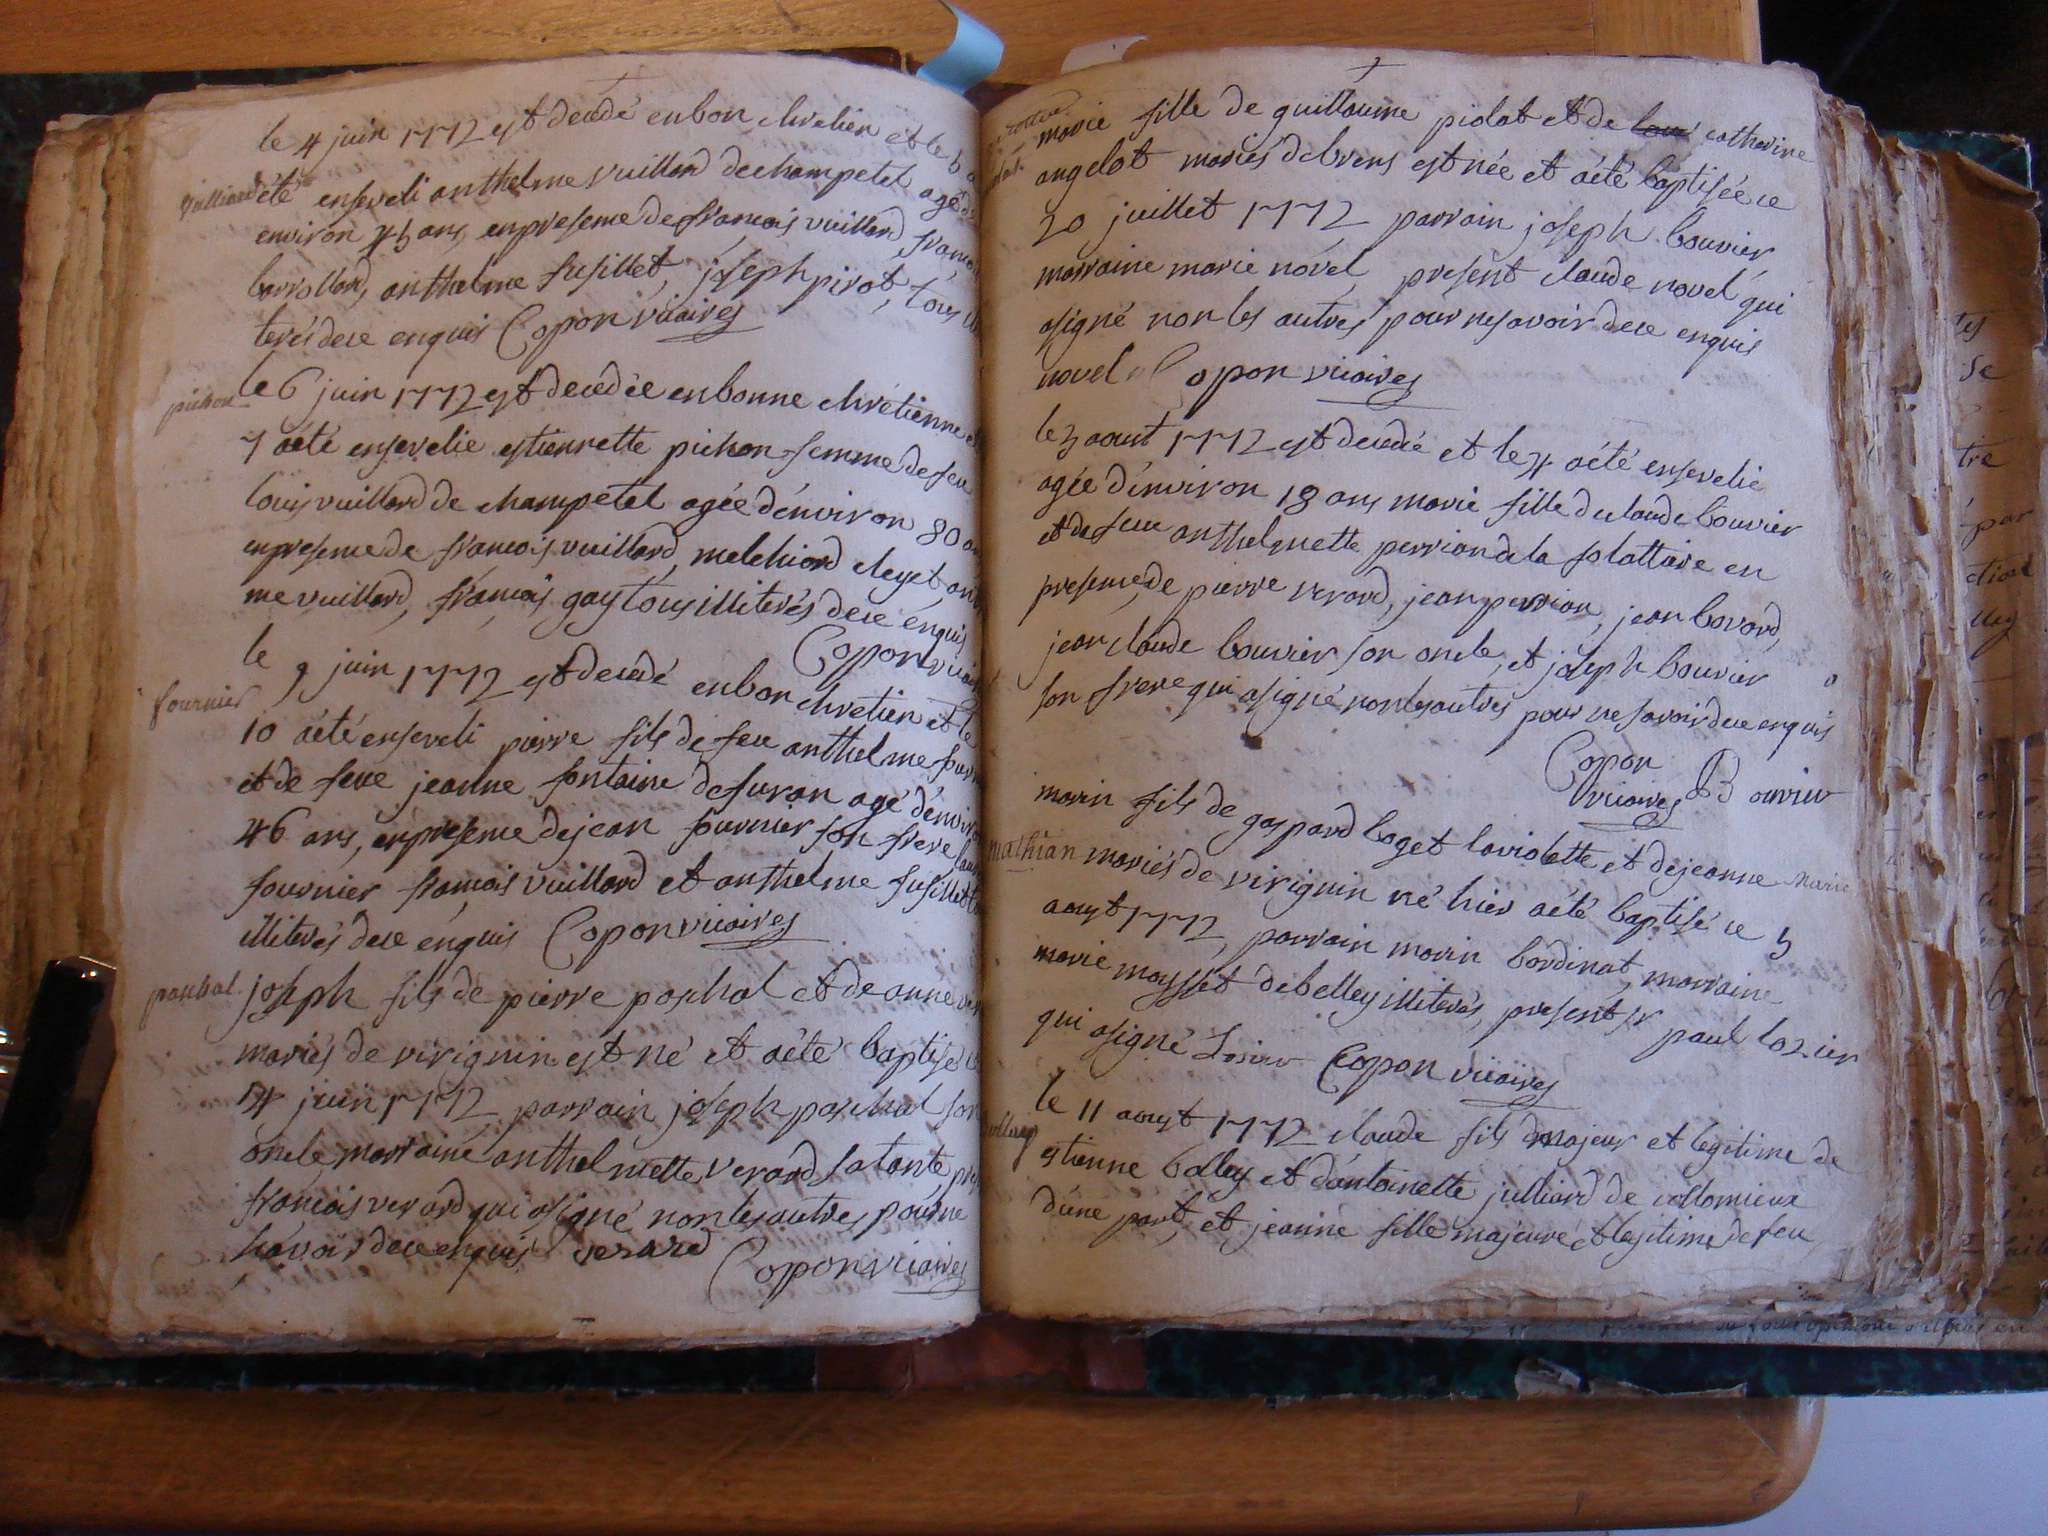 le 4 juin 1772 est decedé en bon chretien et le 5 a
vuilliard
été enseveli anthelme vuillard de champetel agé d'
environ 45 ans, en presence de francois vuillard, francois
borrollard, anthelme fusillet, joseph pirot, tous illi
terés de ce enquis Copon vicaires
pichon
le 6 juin 1772 est decedée en bonne chrétienne et
7 a eté ensevelie estiennette pichon femme de feu
louis vuillard de champetel agée d'environ 80 an
en presence de francois vuillard, melchiord cleyet, an
me vuillard, francois gay tous illiterés de ce enquis
Copon vicaires
le 9 juin 1772 est decedé en bon chretien et le
fournier
10 a eté enseveli pierre fils de feu anthelme four
et de feue jeanne fontaine de suran agé d'enviro
46 ans, en presence de jean fournier son frere
fournier francois vuillard et anthelme fusillet
illiterés de ce enquis Copon vicaires
paschal.
joseph fils de pierre paschal et de anne ver
mariés de virignin est né et a eté baptisé ce
14 juin 1772 parrain joseph paschal son
oncle marraine anthelmette verard sa tante, pre
francois verard qui a signé non les autres pour ne
scavoir de ce enquis verard
Copon vicaires
marie fille de guillaume piolat et de catherine
angelot mariés de brens est née et a eté baptisée ce
20 juillet 1772 parrain joseph bouvier
marraine marie novel, present claude novel qui
a signé non les autres pour ne savoir de ce enquis
novel Copon vicaires
le 3 aout 1772 est decedé et le 4 a eté ensevelie
agée d'environ 18 ans marie fille de claude bouvier
et de feue anthelmette perrion de la plattiere en
presence de pierre verard, jean perrion, jean bovard,
jean claude bouvier son oncle, et joseph bouvier
son frere qui a signé non les autres pour ne savoir de ce enquis
Copon
vicaires Bouvier
marin fils de gaspard boget laviolette et de jeanne marie
mathian
mariés de virignin né hier a eté baptisé ce 5
aoust 1772, parrain marin bordinat, marraine
marie maysset de belley illiterés, present sr paul lozier
qui a signé Losier Copon vicaires
le 11 aoust 1772 claude fils majeur et legitime de
estienne bolley et d'antoinette julliard de collomieux
d'une part, et jeanne fille majeure et legitime de feu